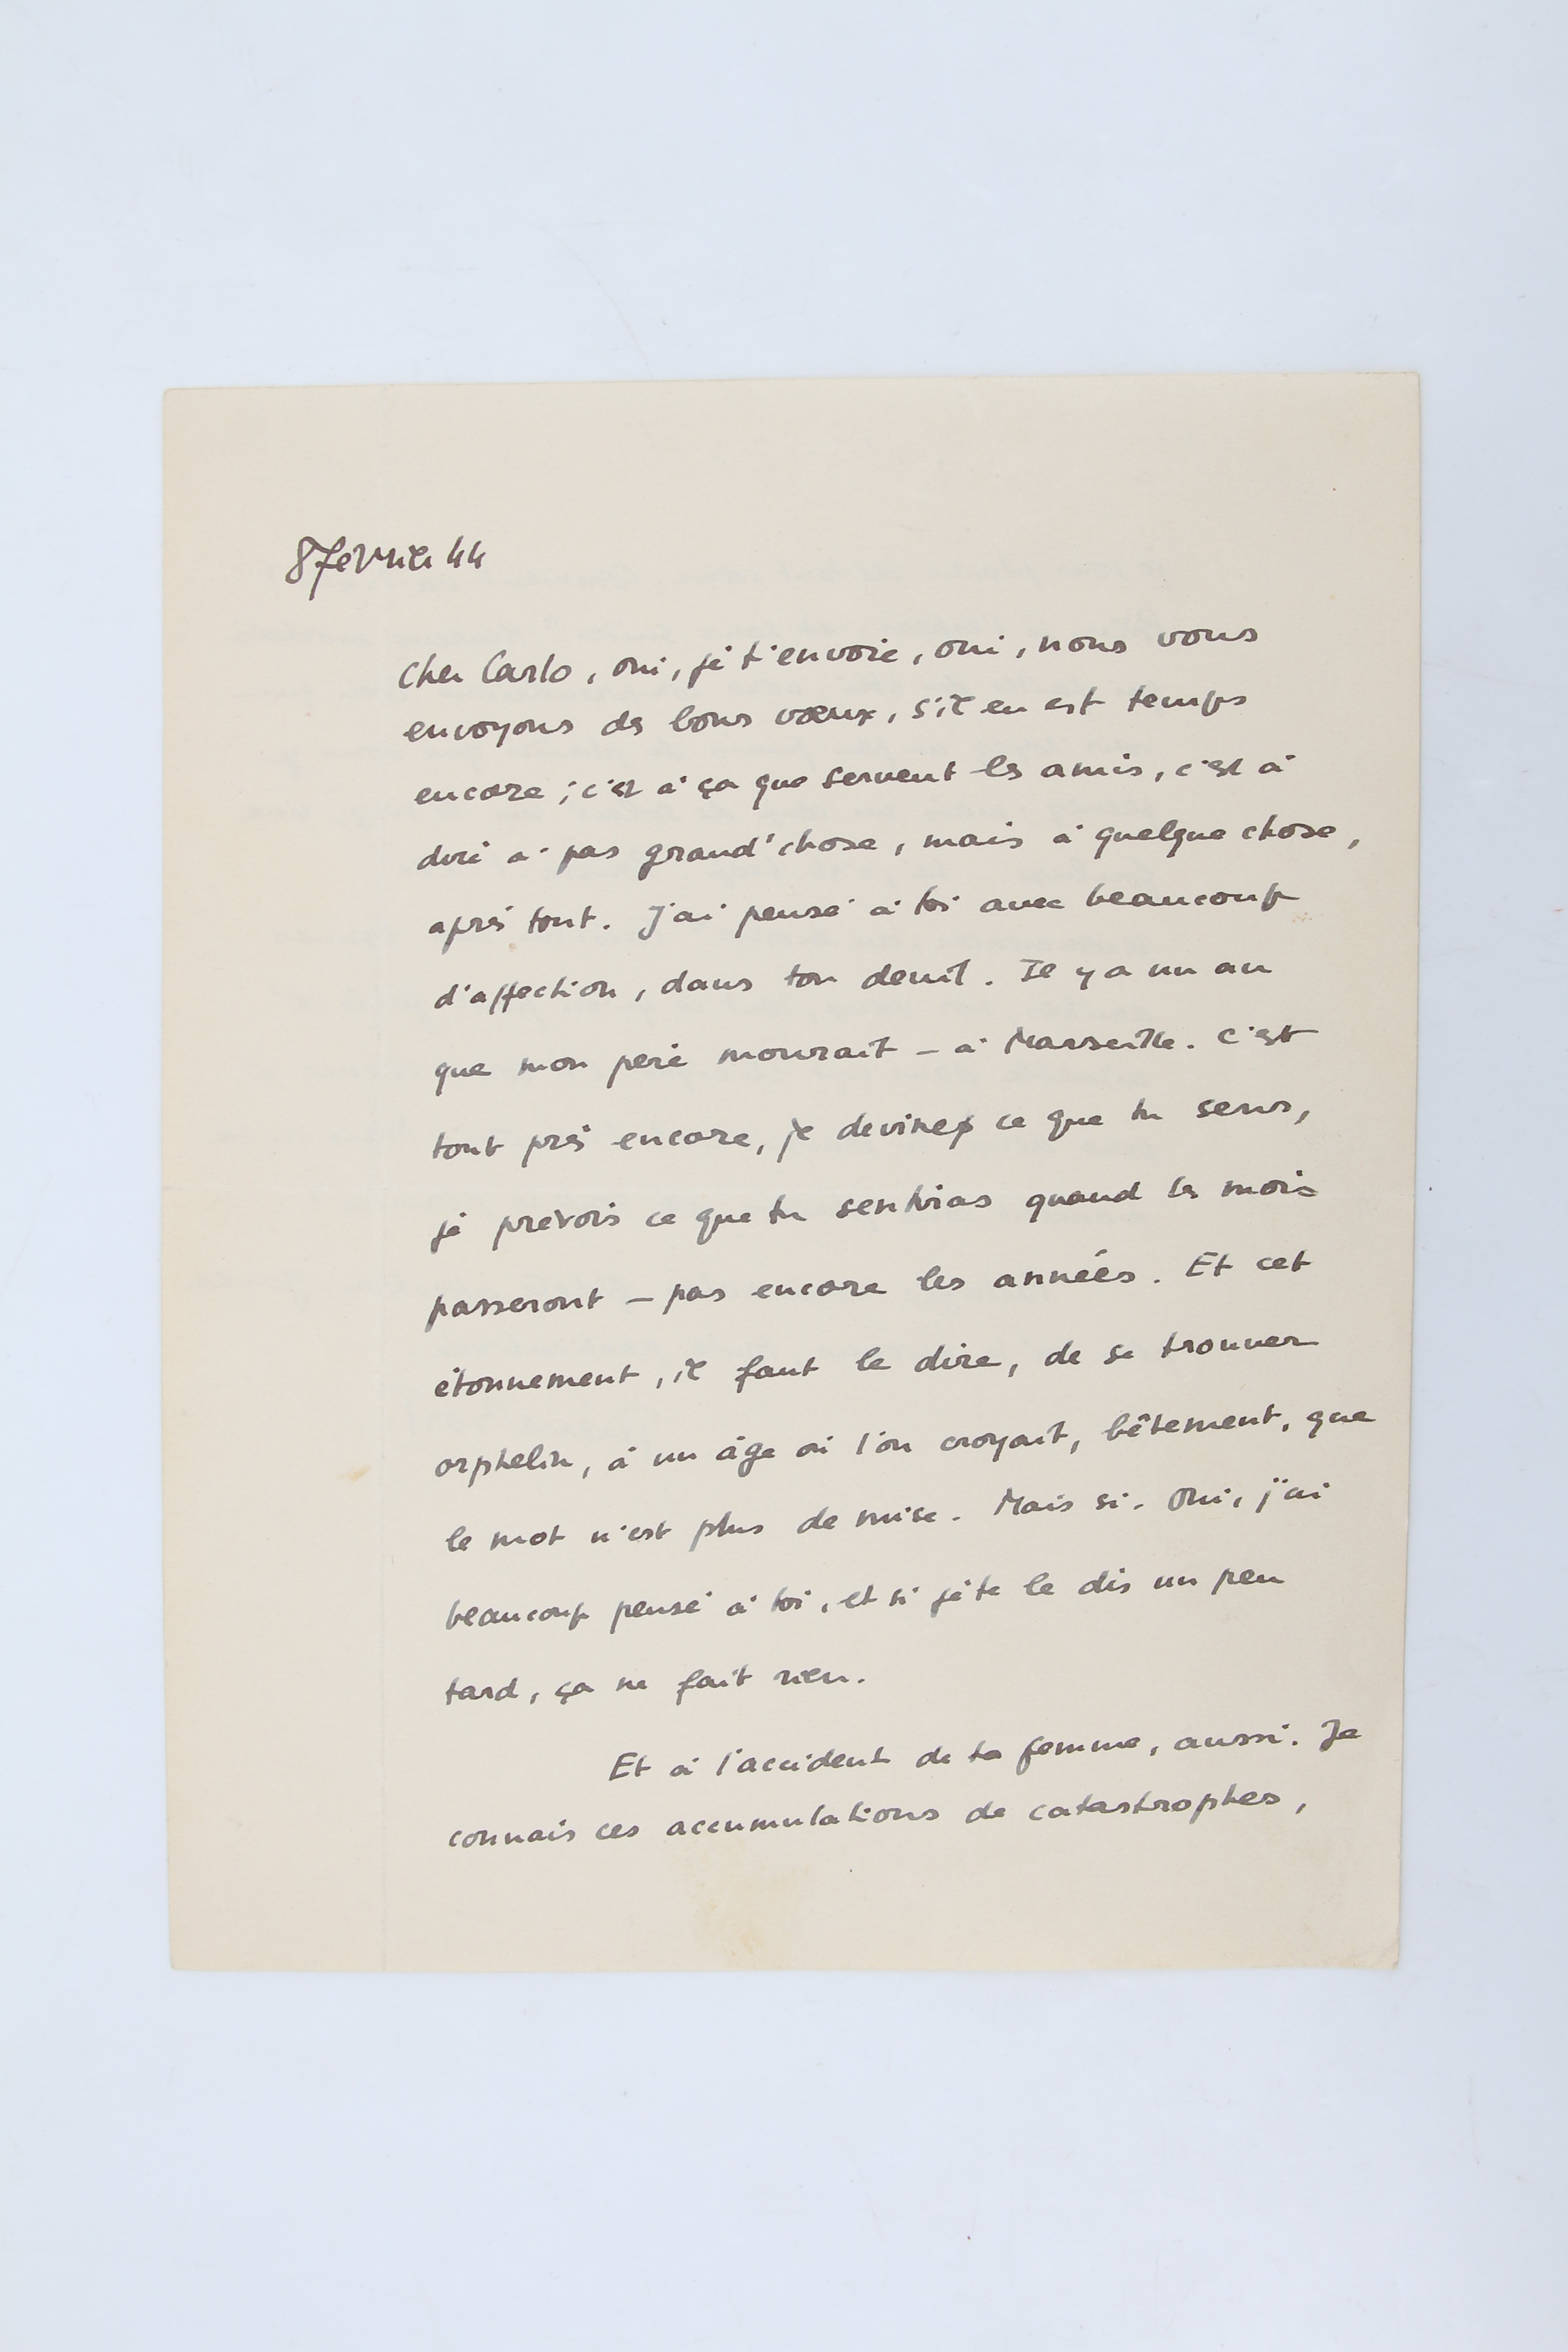 8 février 44
Cher Carlo, oui, je t'envoie, oui, nous vous
envoyons des bons vœux, s'il en est temps
encore ; c'est à ça que servent les amis, c'est à
dire à pas grand'chose, mais à quelque chose,
après tout. J'ai pensé à toi avec beaucoup
d'affection, dans ton deuil. Il y a un an
que mon père mourait – à Marseille. C'est
tout près encore, je devine ce que tu sens,
je prévois ce que tu sentiras quand les mois
passeront – pas encore les années. Et cet
étonnement, il faut le dire, de se trouver
orphelin, à un âge où l'on croyait, bêtement, que
le mot n'est plus de mise. Mais si. Oui, j'ai
beaucoup pensé à toi, et si je te le dis un peu
tard, ça ne fait rien.
Et à l'accident de ta femme, aussi. Je
connais ces accumulations de catastrophes,